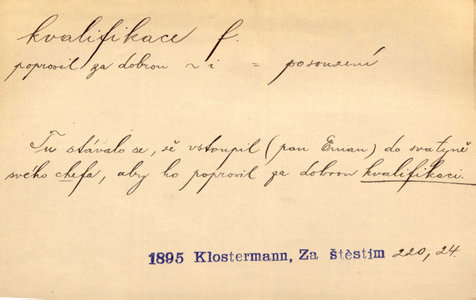 kvalifikace f.
poprosil za dobrou ~ i = posouzení
Tu stávalo se, že vstoupil (pan Eman) do svatyně
svého chefa, aby ho poprosil za dobrou kvalifikaci.
1895 Klostermann, Za štěstím 220, 24.